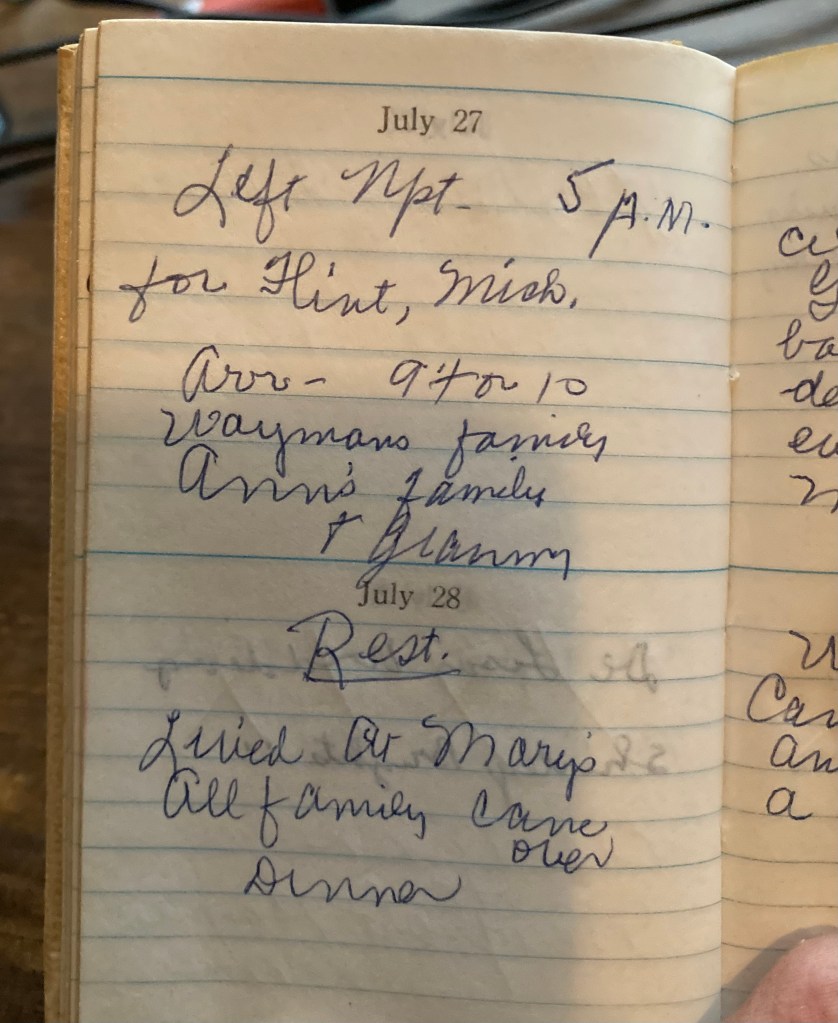 July 27
Left Npt- 5 A.M.
for Flint, Mich.
Arr- 9 + or 10
Waymans family
Ann's family
+ Granny
July 28
Rest.
Lived At Mary's
All family came
over
Dinner
ba
de
Can
an
a